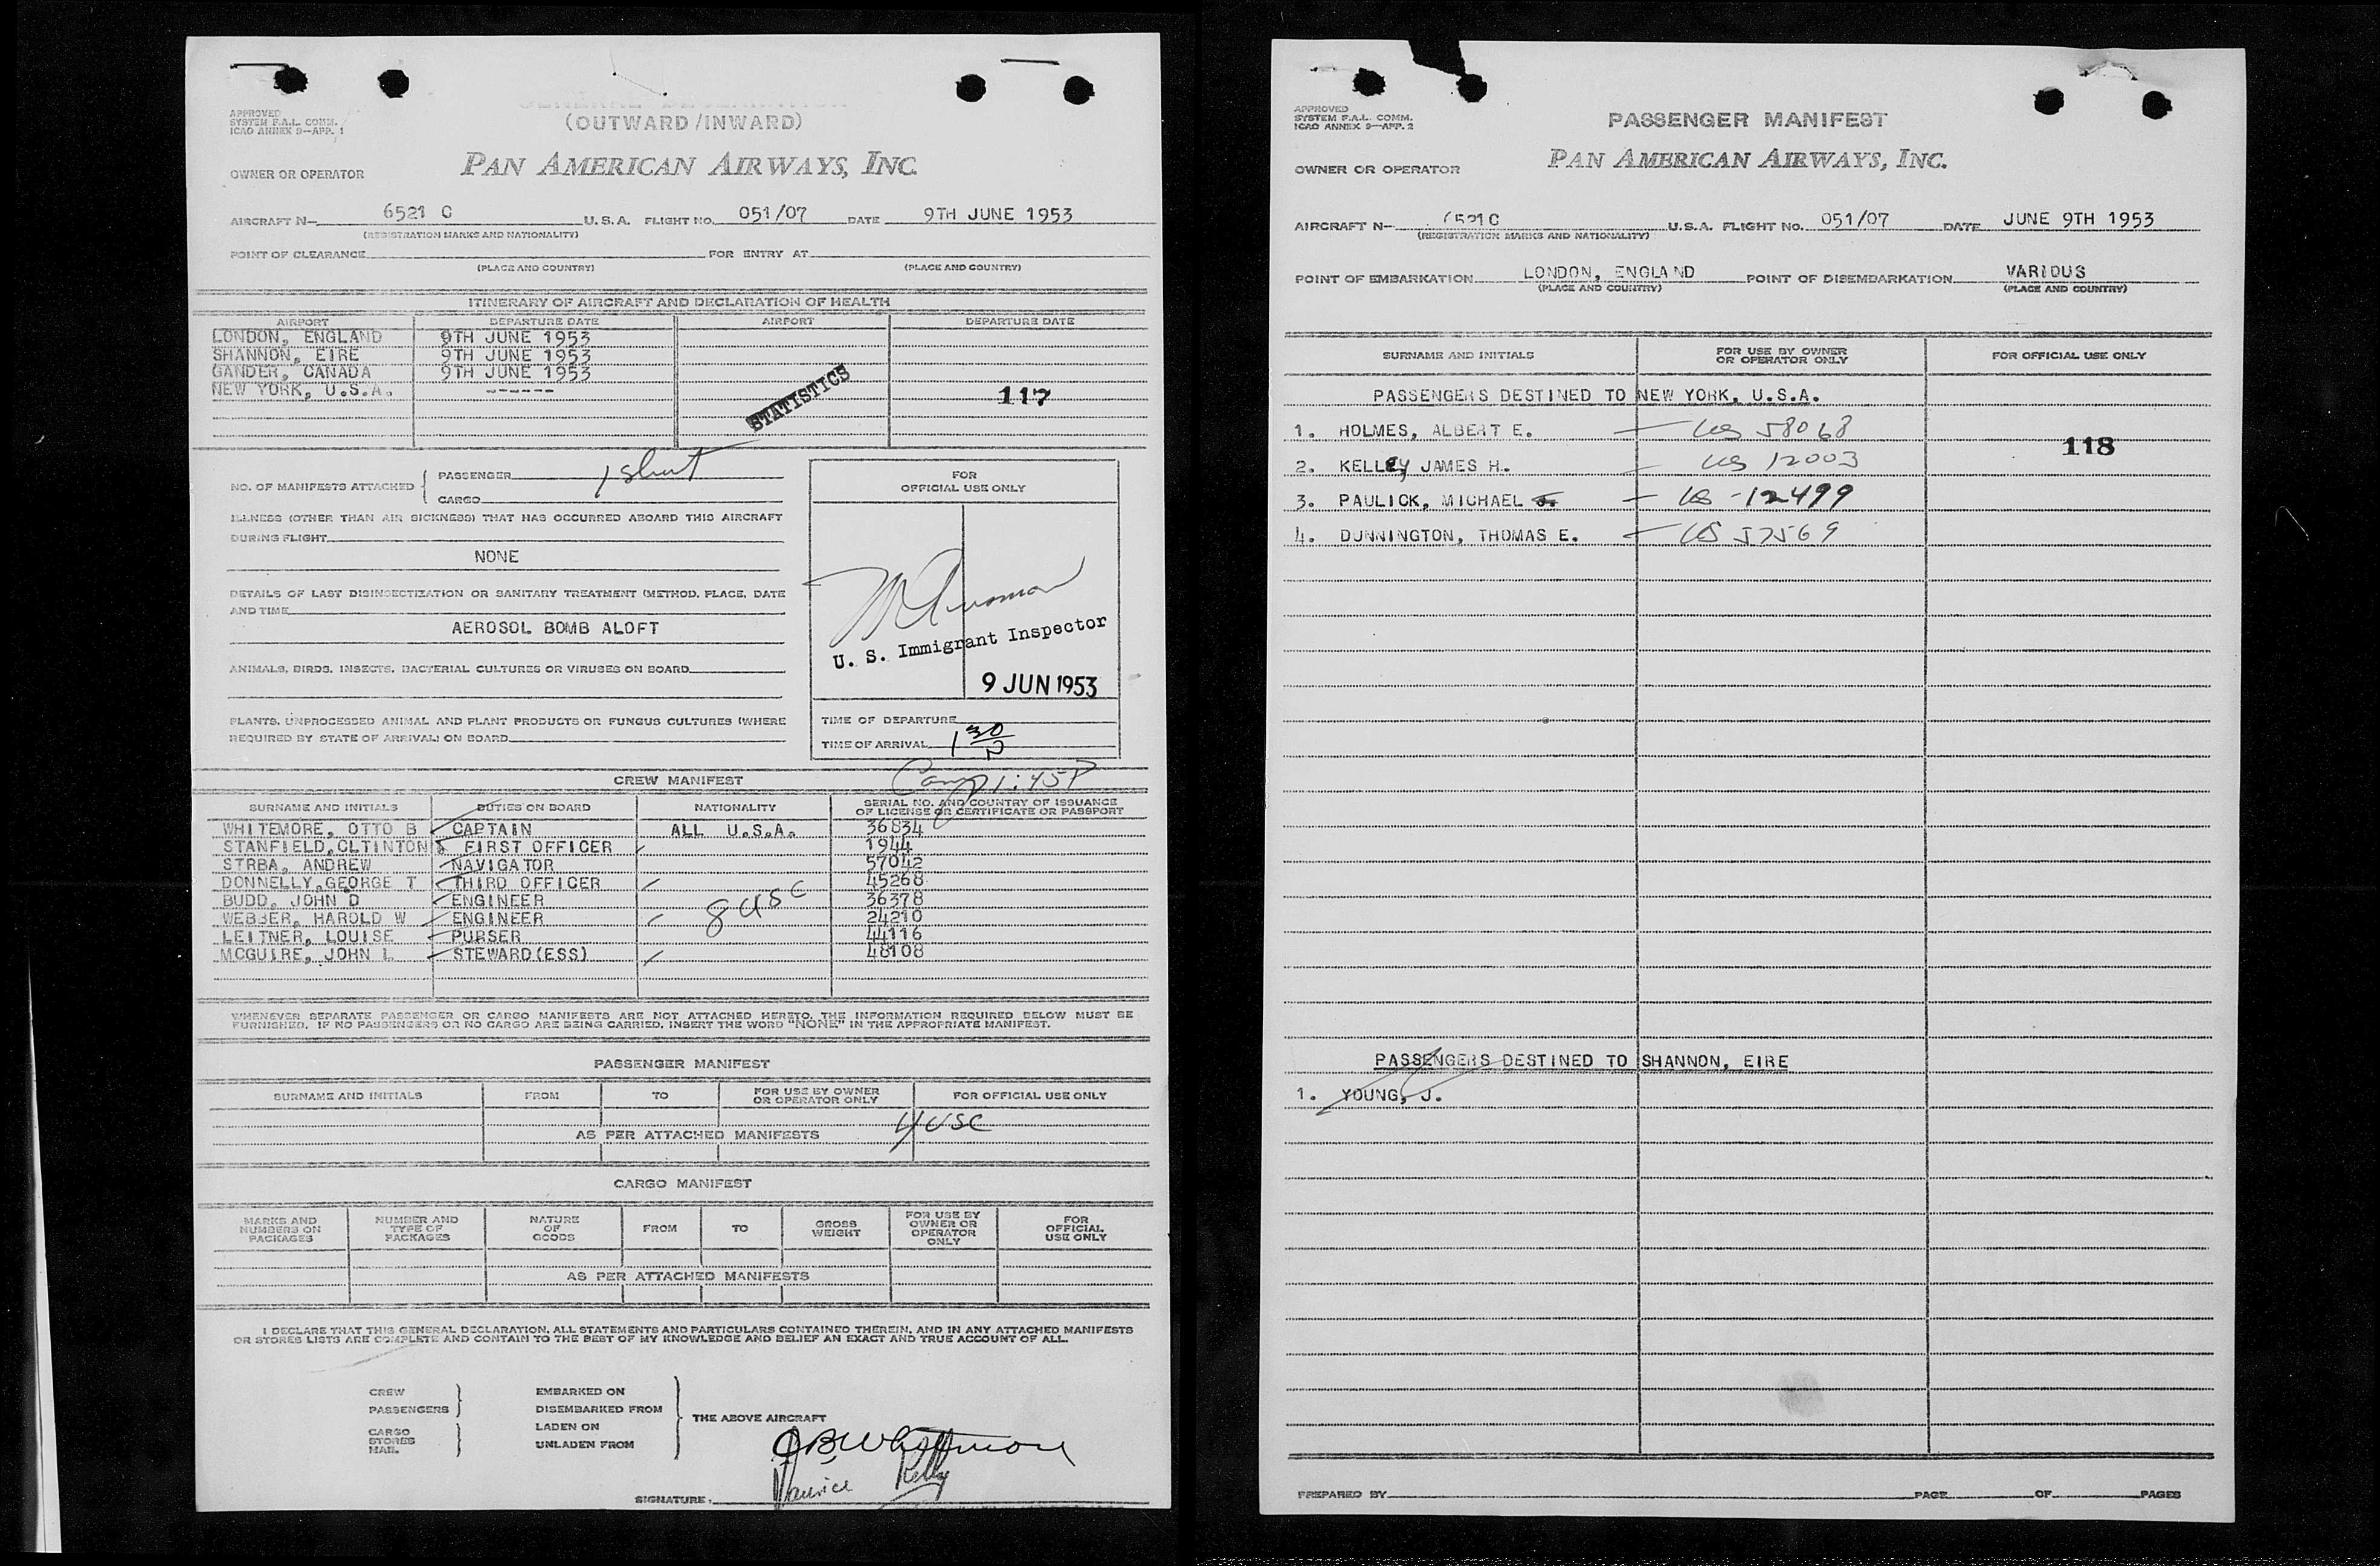 APPROVED
SYSTEM F.A.L. COMM.
ICAO ANNEX 9—APP. 1
GENERAL DECLARATION
(OUTWARD/INWARD)
OWNER OR OPERATOR PAN AMERICAN AIRWAYS, INC.
AIRCRAFT N— 6521 C U.S.A. FLIGHT NO. 051/07 DATE 9TH JUNE 1953
(REGISTRATION MARKS AND NATIONALITY)
POINT OF CLEARANCE FOR ENTRY AT
(PLACE AND COUNTRY) (PLACE AND COUNTRY)
ITINERARY OF AIRCRAFT AND DECLARATION OF HEALTH
AIRPORT DEPARTURE DATE AIRPORT DEPARTURE DATE
LONDON, ENGLAND 9TH JUNE 1953
SHANNON, EIRE 9TH JUNE 1953
GANDER, CANADA 9TH JUNE 1953
NEW YORK, U.S.A. ------
STATISTICS
117
NO. OF MANIFESTS ATTACHED { PASSENGER 1 sheet
CARGO
ILLNESS (OTHER THAN AIR SICKNESS) THAT HAS OCCURRED ABOARD THIS AIRCRAFT
DURING FLIGHT
NONE
DETAILS OF LAST DISINSECTIZATION OR SANITARY TREATMENT (METHOD, PLACE, DATE
AND TIME
AEROSOL BOMB ALOFT
ANIMALS, BIRDS, INSECTS, BACTERIAL CULTURES OR VIRUSES ON BOARD
PLANTS, UNPROCESSED ANIMAL AND PLANT PRODUCTS OR FUNGUS CULTURES (WHERE
REQUIRED BY STATE OF ARRIVAL) ON BOARD
FOR
OFFICIAL USE ONLY
U. S. Immigrant Inspector
9 JUN 1953
TIME OF DEPARTURE
TIME OF ARRIVAL 1 30 P
Comp 1:45P
CREW MANIFEST
SURNAME AND INITIALS DUTIES ON BOARD NATIONALITY SERIAL NO. AND COUNTRY OF ISSUANCE
OF LICENSE OR CERTIFICATE OR PASSPORT
WHITEMORE, OTTO B CAPTAIN ALL U.S.A. 36834
STANFIELD,CLTINTON FIRST OFFICER 1944
STRBA, ANDREW NAVIGATOR 57042
DONNELLY,GEORGE T THIRD OFFICER 45268
BUDD, JOHN D ENGINEER 36378
WEBBER, HAROLD W ENGINEER 24210
LEITNER, LOUISE PURSER 44116
MCGUIRE, JOHN L STEWARD(ESS) 48108
8 USC
WHENEVER SEPARATE PASSENGER OR CARGO MANIFESTS ARE NOT ATTACHED HERETO, THE INFORMATION REQUIRED BELOW MUST BE
FURNISHED. IF NO PASSENGERS OR NO CARGO ARE BEING CARRIED, INSERT THE WORD "NONE" IN THE APPROPRIATE MANIFEST.
PASSENGER MANIFEST
SURNAME AND INITIALS FROM TO FOR USE BY OWNER
OR OPERATOR ONLY FOR OFFICIAL USE ONLY
4 USC
AS PER ATTACHED MANIFESTS
CARGO MANIFEST
MARKS AND
NUMBERS ON
PACKAGES NUMBER AND
TYPE OF
PACKAGES NATURE
OF
GOODS FROM TO GROSS
WEIGHT FOR USE BY
OWNER OR
OPERATOR
ONLY FOR
OFFICIAL
USE ONLY
AS PER ATTACHED MANIFESTS
I DECLARE THAT THIS GENERAL DECLARATION, ALL STATEMENTS AND PARTICULARS CONTAINED THEREIN, AND IN ANY ATTACHED MANIFESTS
OR STORES LISTS ARE COMPLETE AND CONTAIN TO THE BEST OF MY KNOWLEDGE AND BELIEF AN EXACT AND TRUE ACCOUNT OF ALL.
CREW EMBARKED ON
PASSENGERS DISEMBARKED FROM
THE ABOVE AIRCRAFT
CARGO LADEN ON
STORES
MAIL UNLADEN FROM
OBWhittemore
Maurice Kelly
SIGNATURE:
APPROVED
SYSTEM F.A.L. COMM.
ICAO ANNEX 9—APP. 2
PASSENGER MANIFEST
OWNER OR OPERATOR PAN AMERICAN AIRWAYS, INC.
AIRCRAFT N— 6521C U.S.A. FLIGHT NO. 051/07 DATE JUNE 9TH 1953
(REGISTRATION MARKS AND NATIONALITY)
POINT OF EMBARKATION LONDON, ENGLAND POINT OF DISEMBARKATION VARIOUS
(PLACE AND COUNTRY) (PLACE AND COUNTRY)
SURNAME AND INITIALS FOR USE BY OWNER
OR OPERATOR ONLY FOR OFFICIAL USE ONLY
PASSENGERS DESTINED TO NEW YORK, U.S.A.
1. HOLMES, ALBERT E. — US 58068
118
2. KELLEY JAMES H. — US 12003
3. PAULICK, MICHAEL — US -12499
4. DUNNINGTON, THOMAS E. — US 57569
PASSENGERS DESTINED TO SHANNON, EIRE
1. YOUNG, J.
PREPARED BY PAGE OF PAGES